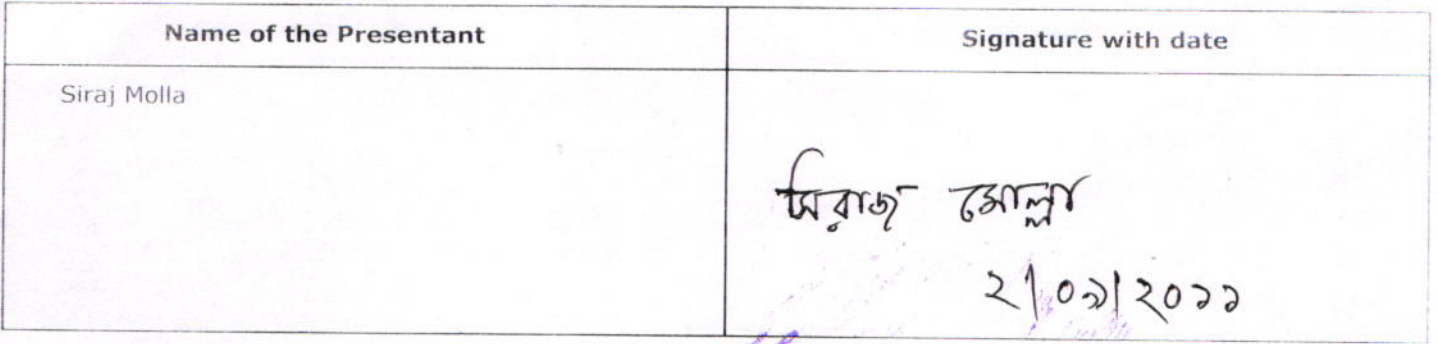 Name of the Presentant Signature with date
Siraj Molla
সিরাজ মোল্লা
২|০৯|২০১১